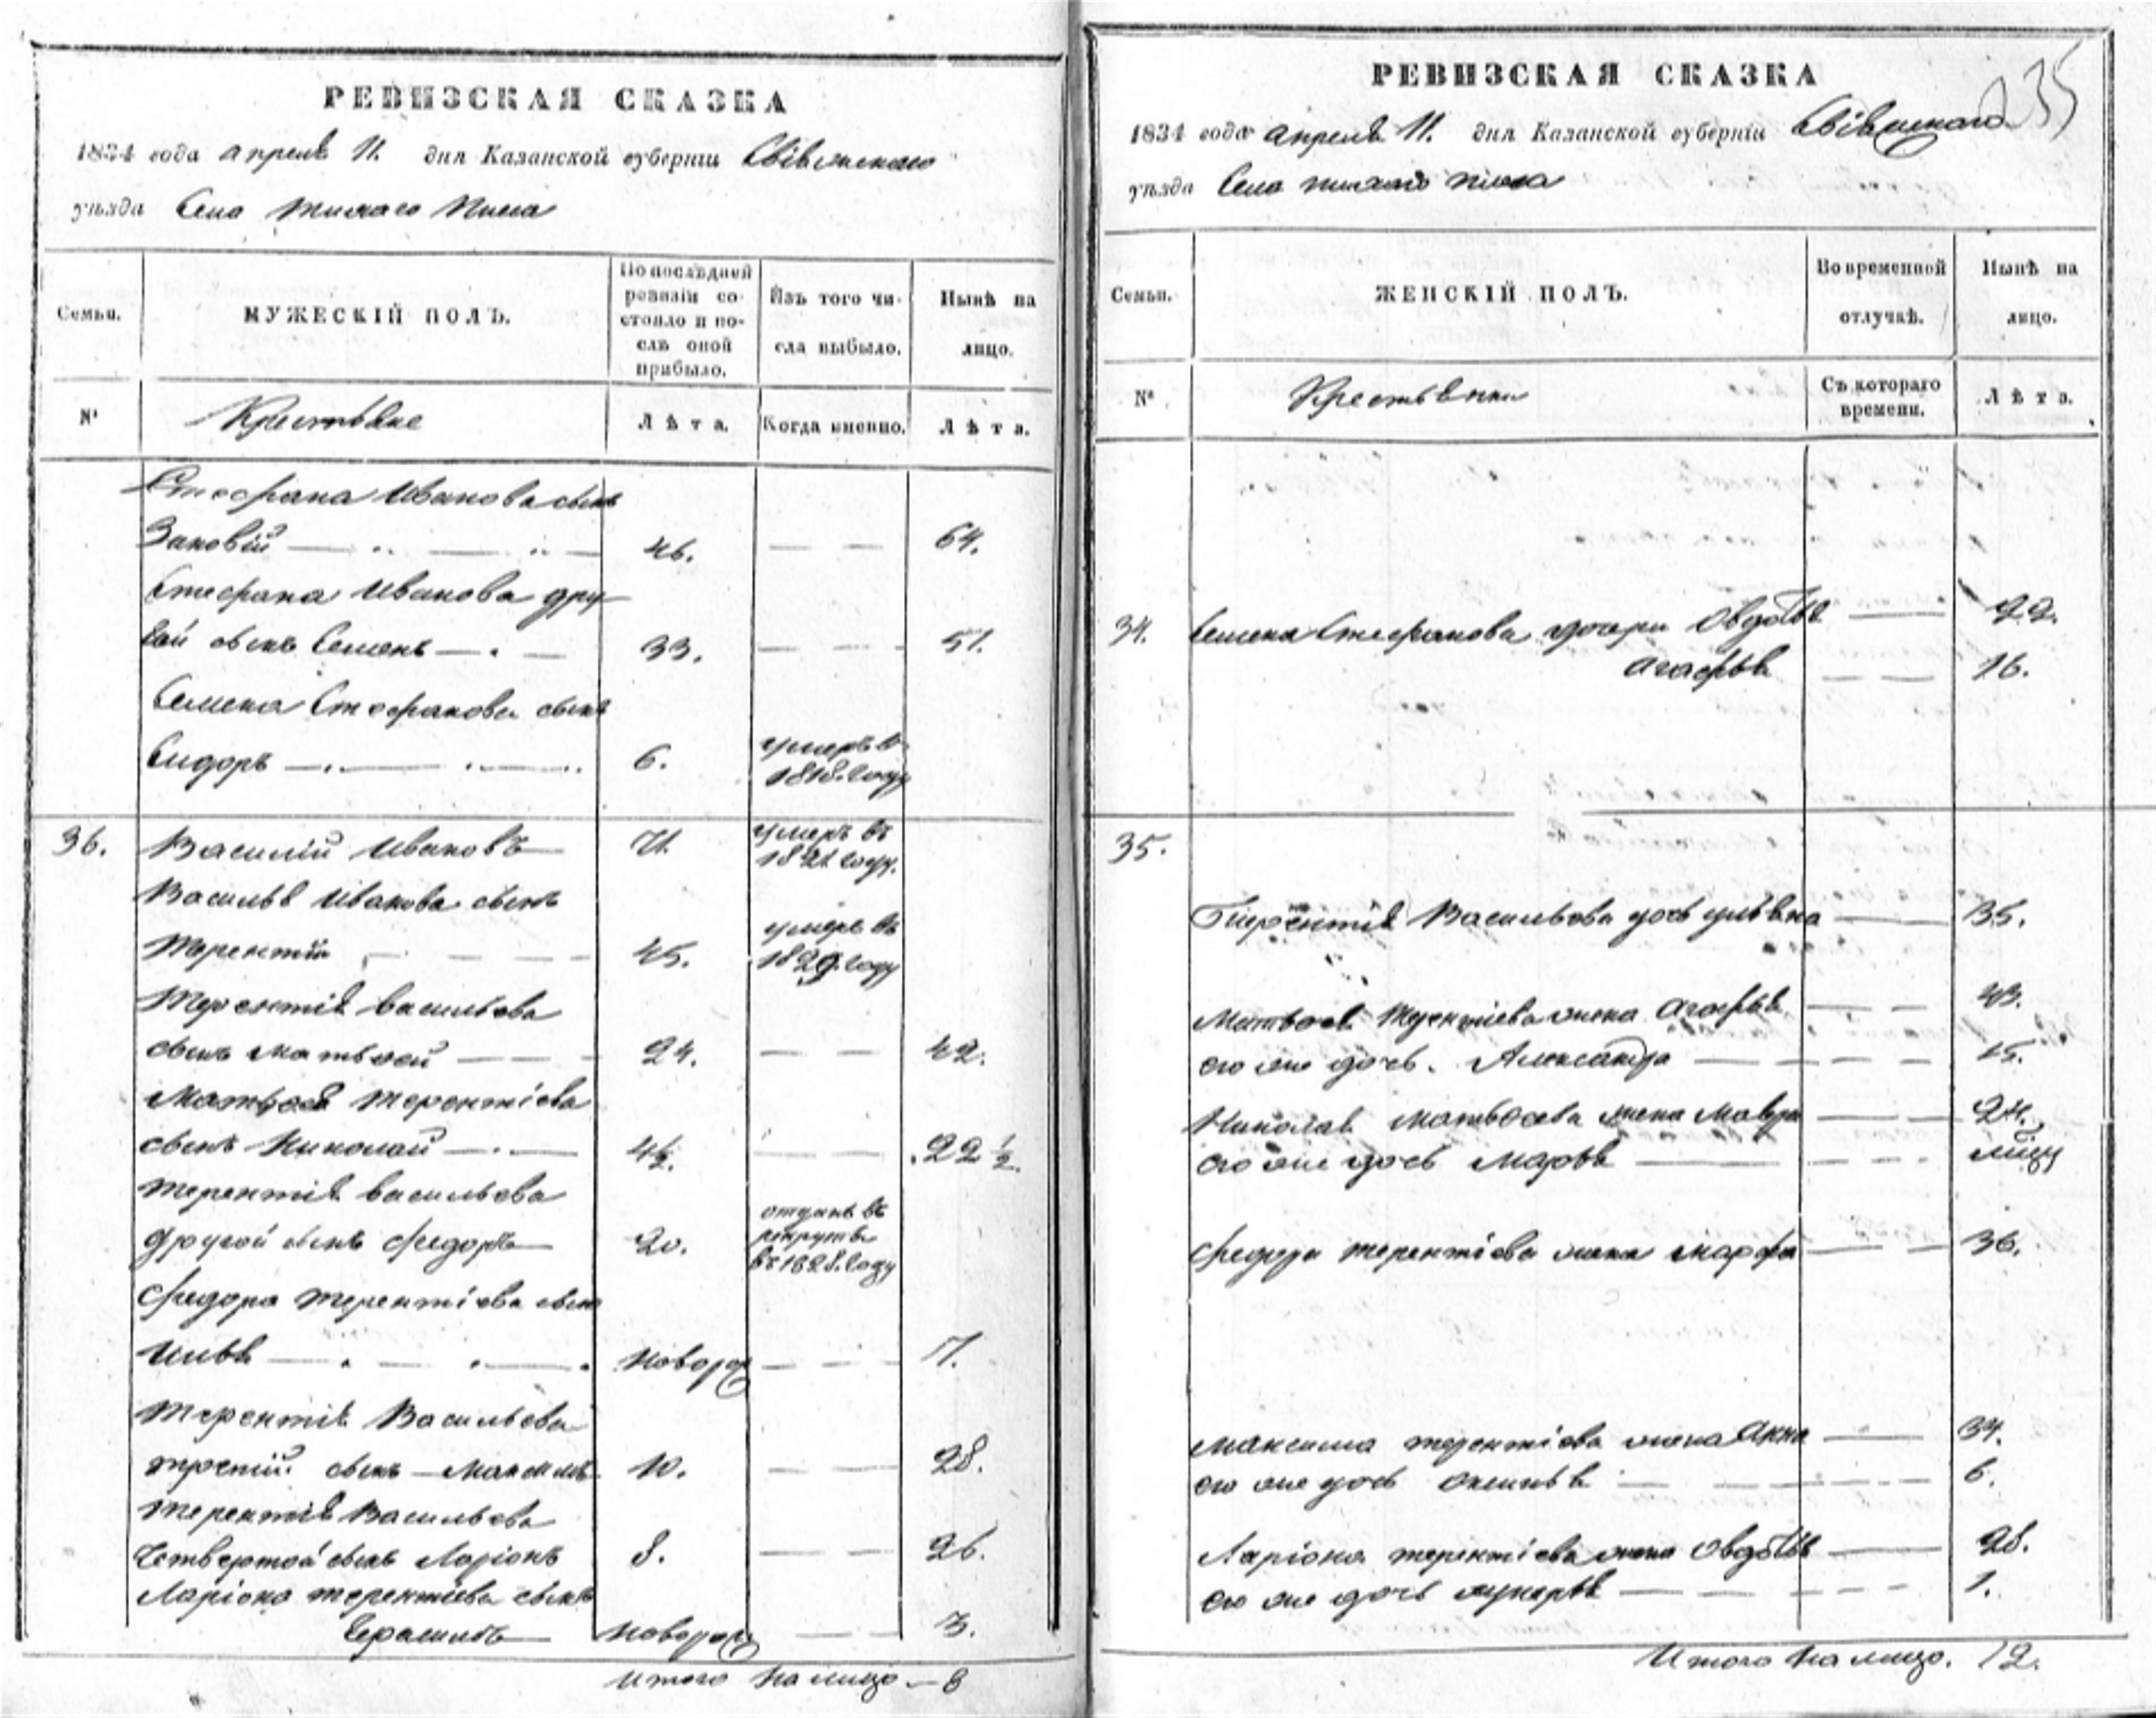 РЕВИЗСКАЯ СКАЗКА
1834 года апреля 11. дня Казанской губернiи Свiяжскаго
уѣзда Села
Семьи.
МУЖЕСКIЙ ПОЛЪ.
По послѣдней ревизiи состояло и послѣ оной прибыло.
Изъ того числа выбыло.
Нынѣ на лицо.
№
Крестьяне
Лѣта.
Когда именно.
Лѣта.
Стефана Иванова сынъ
46. 64.
Стефана Иванова дру
гой сынъ Семенъ 33. 51.
Семена Стефанова сынъ
Сидоръ 6. умеръ въ 1818. году
36. Василiй Ивановъ 71. умеръ въ 1821 году.
Василья Иванова сынъ
Терентiй 45. умеръ въ 1829. году
Терентiя Васильева
сынъ Матвей 24. 42.
Матвея Терентiева
сынъ Николай 4½. 22½.
Терентiя Васильева
другой сынъ Федоръ 20. отданъ въ рекруты въ 1828. году
Федора Терентiева сынъ
Илья новорож 7.
Терентiя Васильева
третiй сынъ Максимъ 10. 28.
Терентiя Васильева
четвертой сынъ Ларiонъ 8. 26.
Ларiона Терентiева сынъ
Герасимъ новорож 3.
Итого на лицо 8
РЕВИЗСКАЯ СКАЗКА
235
1834 года апреля 11. дня Казанской губернiи Свiяжскаго
уѣзда Села
Семьи.
ЖЕНСКIЙ ПОЛЪ.
Во временной отлучкѣ.
Нынѣ на лицо.
№
Крестьянки
Съ котораго времени.
Лѣта.
34. Семена Стефанова дочери Овдотья 22.
Агафья 16.
35.
Терентiя Васильева дочь Ульяна 35.
Матвея Терентiева жена Агафья 43.
его же дочь. Александра 15.
Николая Матвеева жена Мавра 24.
его же дочь Марья
Федора Терентiева жена Марфа 36.
Максима Терентiева жена Анна 34.
его же дочь Оксинья 6.
Ларiона Терентiева жена Овдотья 28.
его же дочь Лукерья 1.
Итого на лицо. 12.